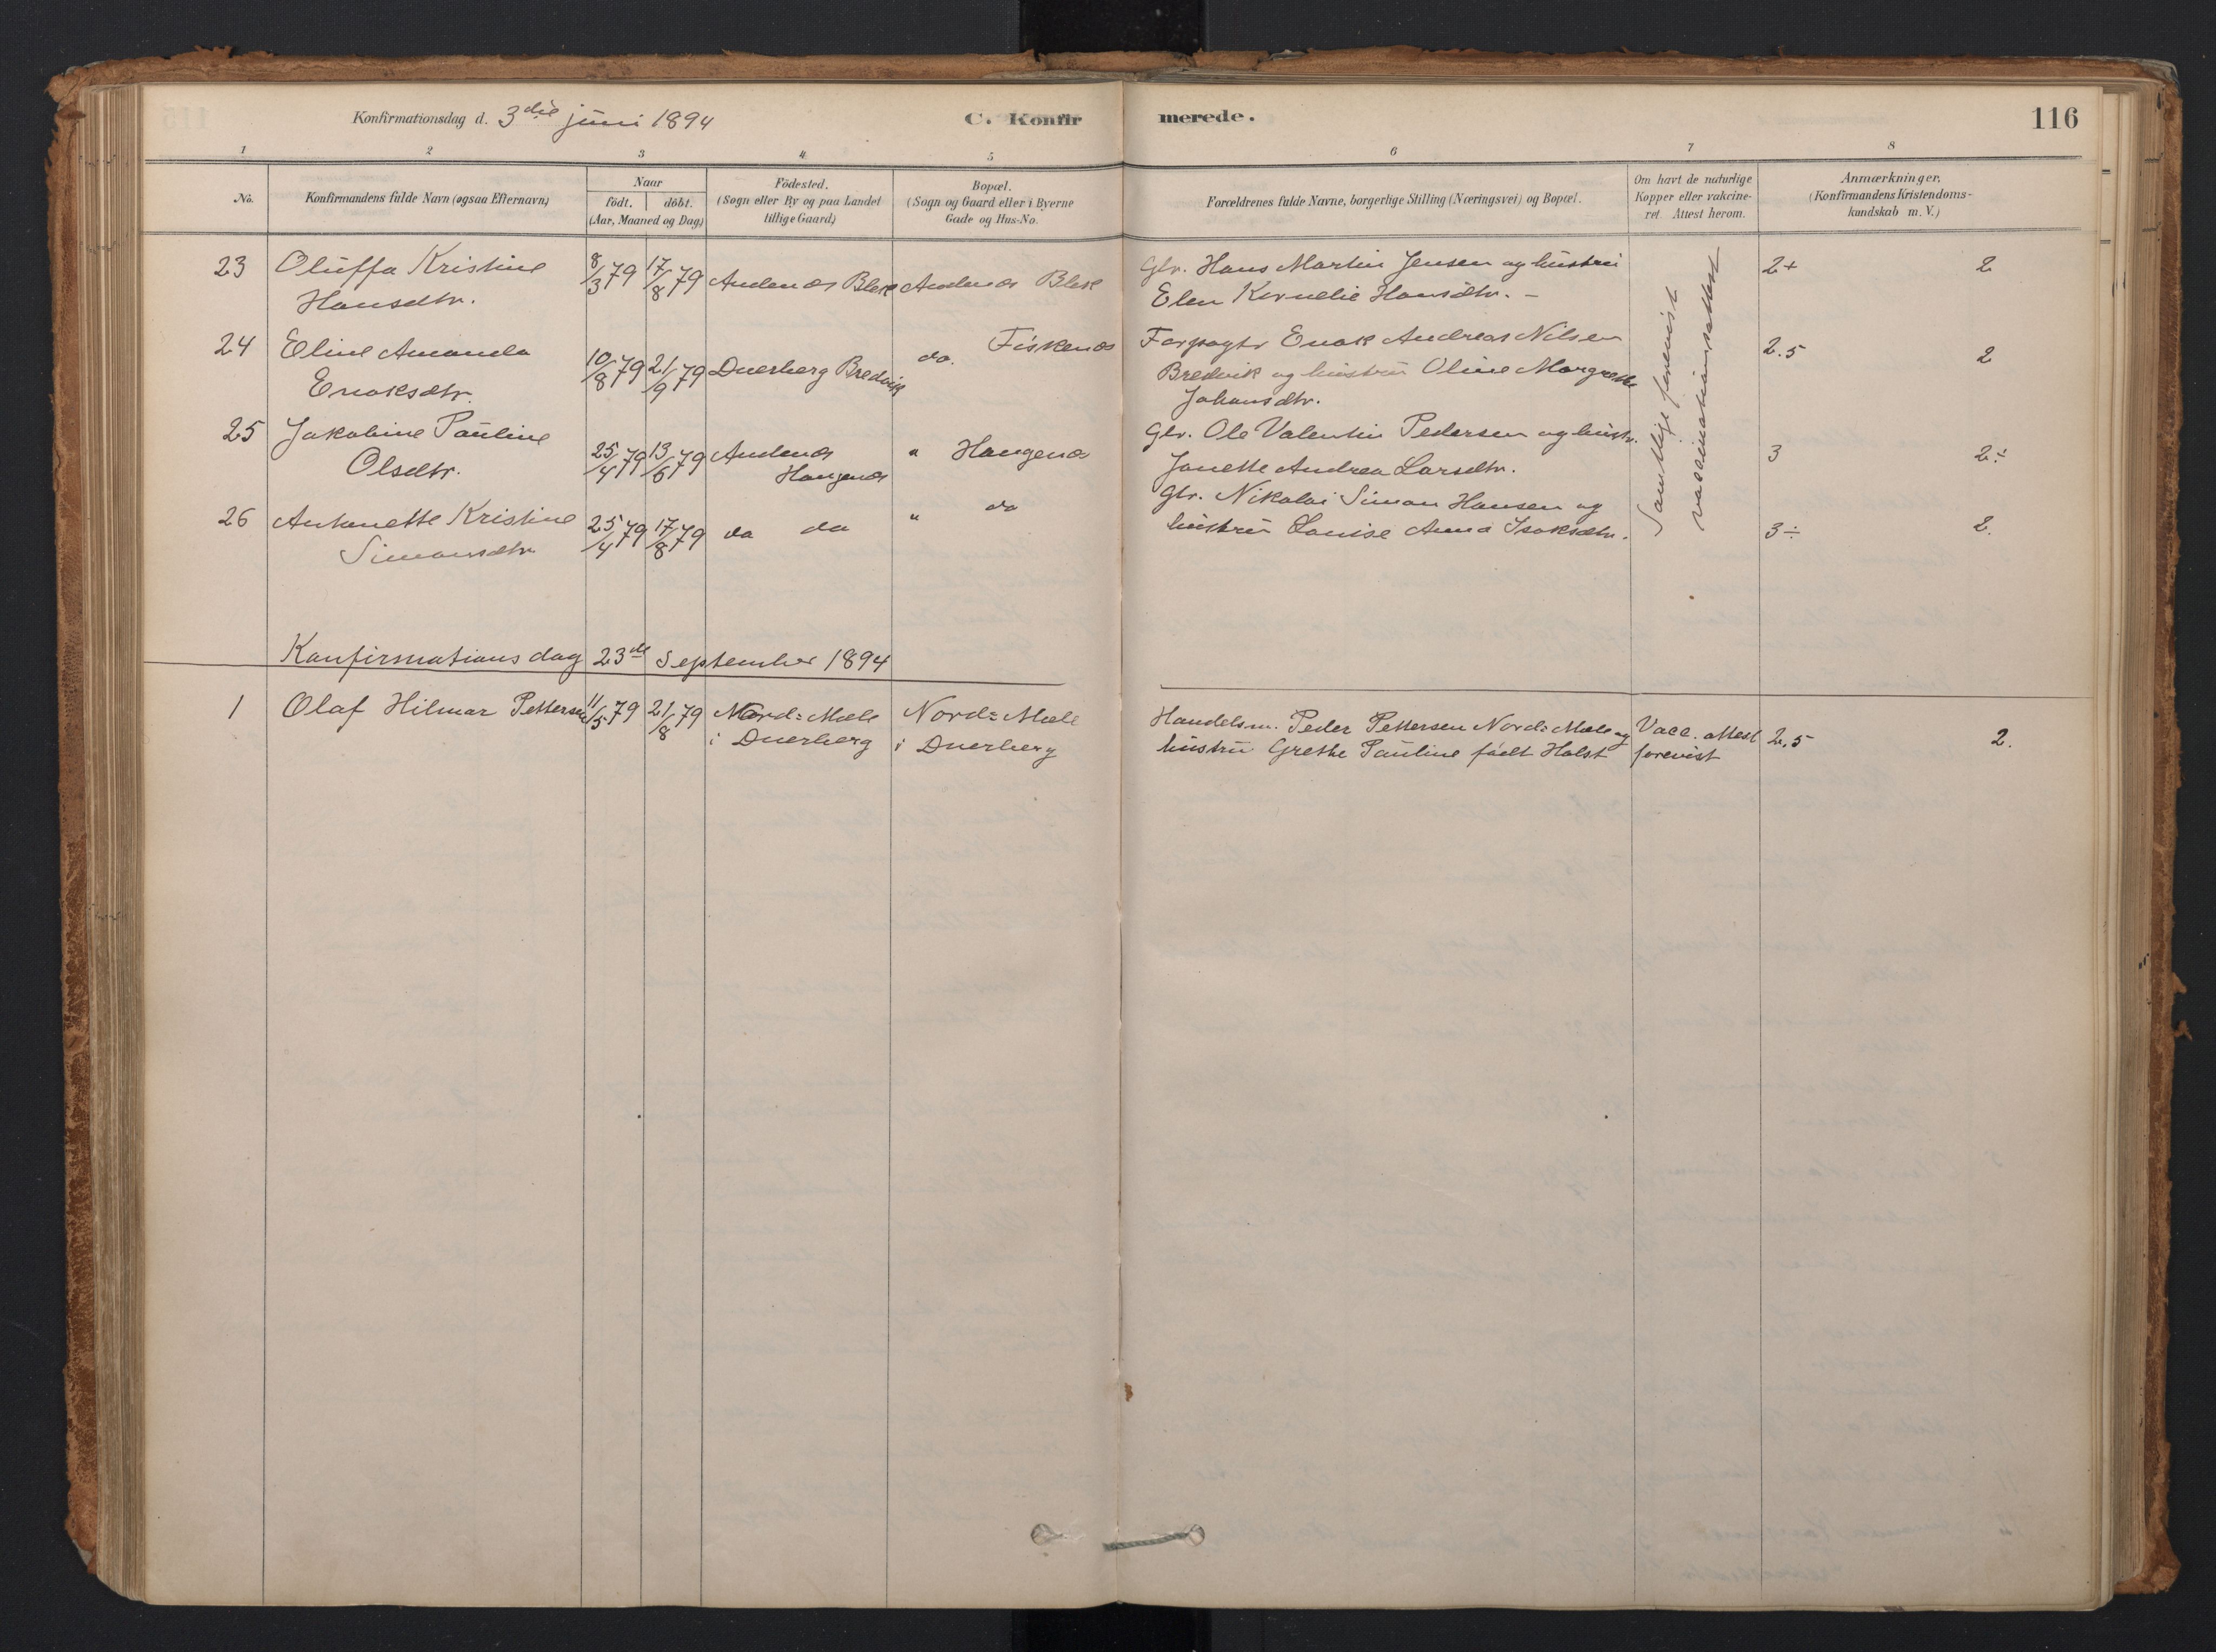 Konfirmationsdag d. 3die juni 1894
C. Konfirmerede.
116
1 2 3 4 5 6 7 8
No.
Konfirmandens fulde Navn (ogsaa Efternavn)
Naar
födt. döbt.
(Aar, Maaned og Dag)
Födested.
(Sogn eller By og paa Landet
tillige Gaard)
Bopæl.
(Sogn og Gaard eller i Byerne
Gade og Hus-No.
Forældrenes fulde Navne, borgerlige Stilling (Næringsvei) og Bopæl.
Om havt de naturlige
Kopper eller vakcine-
ret. Attest herom.
Anmærkninger.
(Konfirmandens Kristendoms-
kundskab m. V.)
23 Oluffa Kristine 8/3 79 17/8 79 Andenæs Blek Andenæs Blek Gbr. Hans Martin Jensen og hustru 2+ 2
Hansdtr. Elen Kornelie Hansdtr. -
24 Eline Amanda 10/8 79 21/9 79 Dverberg Bredvik do. Fiskenæs Forpagtr Enok Andreas Nilsen 2.5 2
Enoksdtr. Bredvik og hustru Oline Margrethe
Johansdtr.
25 Jakobine Pauline 25/4 79 13/6 79 Andenæs " Haugenæs Gbr. Ole Valentin Pedersen og hustr. 3 2÷
Olsdtr. Haugenæs Janette Andrea Larsdtr.
26 Antonette Kristine 25/4 79 17/8 79 do do " do Gbr. Nikolai Simon Hansen og
Simonsdtr hustru Lovise Anna Isaksdtr. 3÷ 2.
Samtlige forevist
vaccinationsattest
Konfirmationsdag 23de September 1894
1 Olaf Hilmar Pettersen 11/5 79 21/8 79 Nord-Mele Nord-Mele Handelsm. Peder Pettersen Nord-Mele og Vacc. attest 2,5 2.
i Dverberg i Dverberg hustru Grethe Pauline født Holst forevist